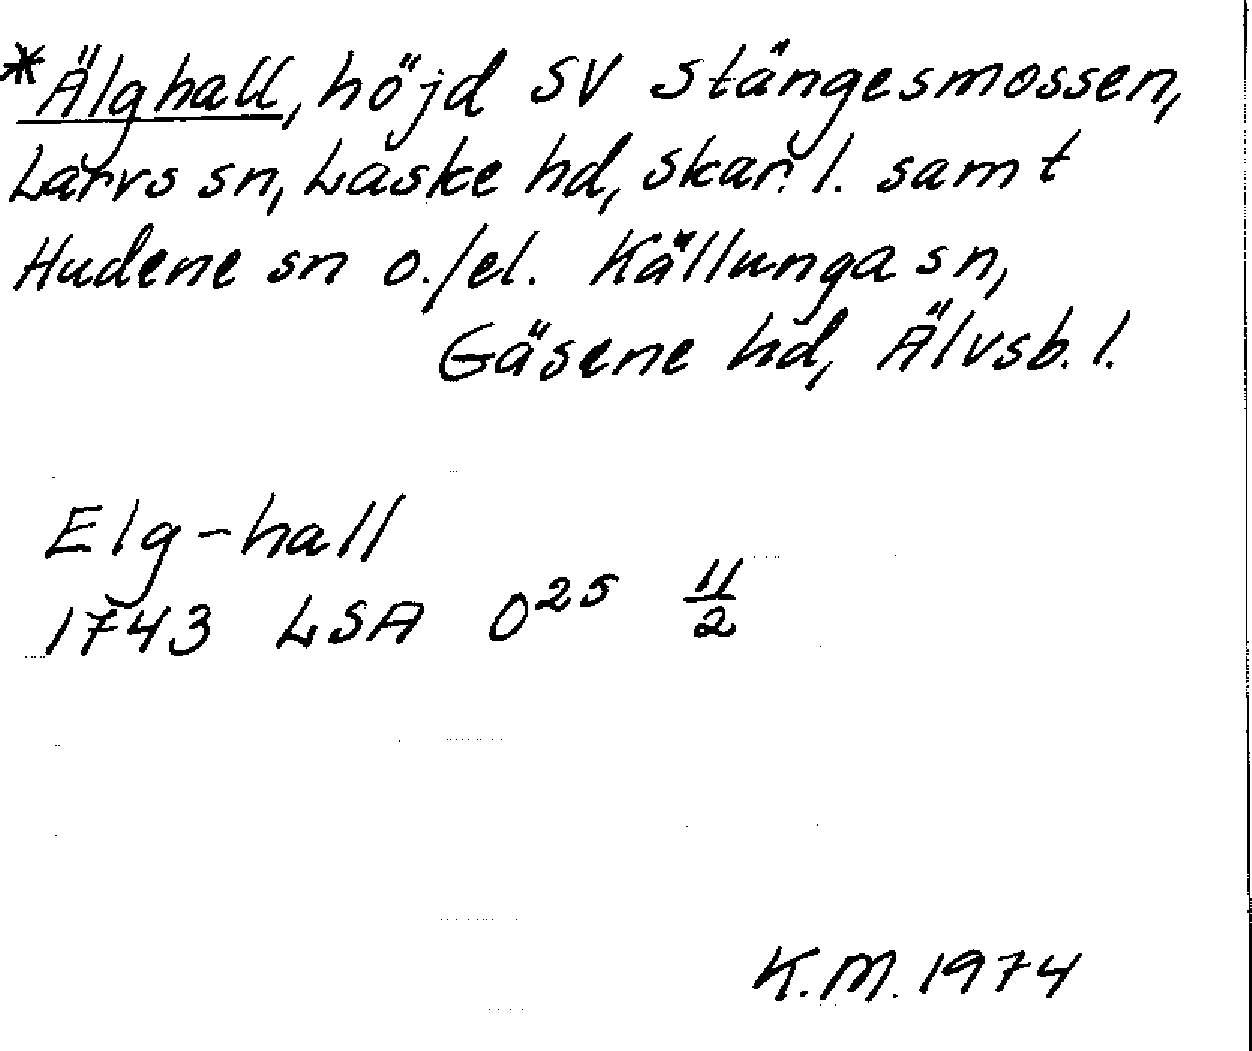 *Älghall, höjd SV Stängesmossen,
Larvs sn, Laske hd, Skar. l. samt
Hudene sn o./el. Källunga sn,
Gäsene hd, Älvsb. l.
Elg-hall
1743 LSA O25 11/2
K.M. 1974